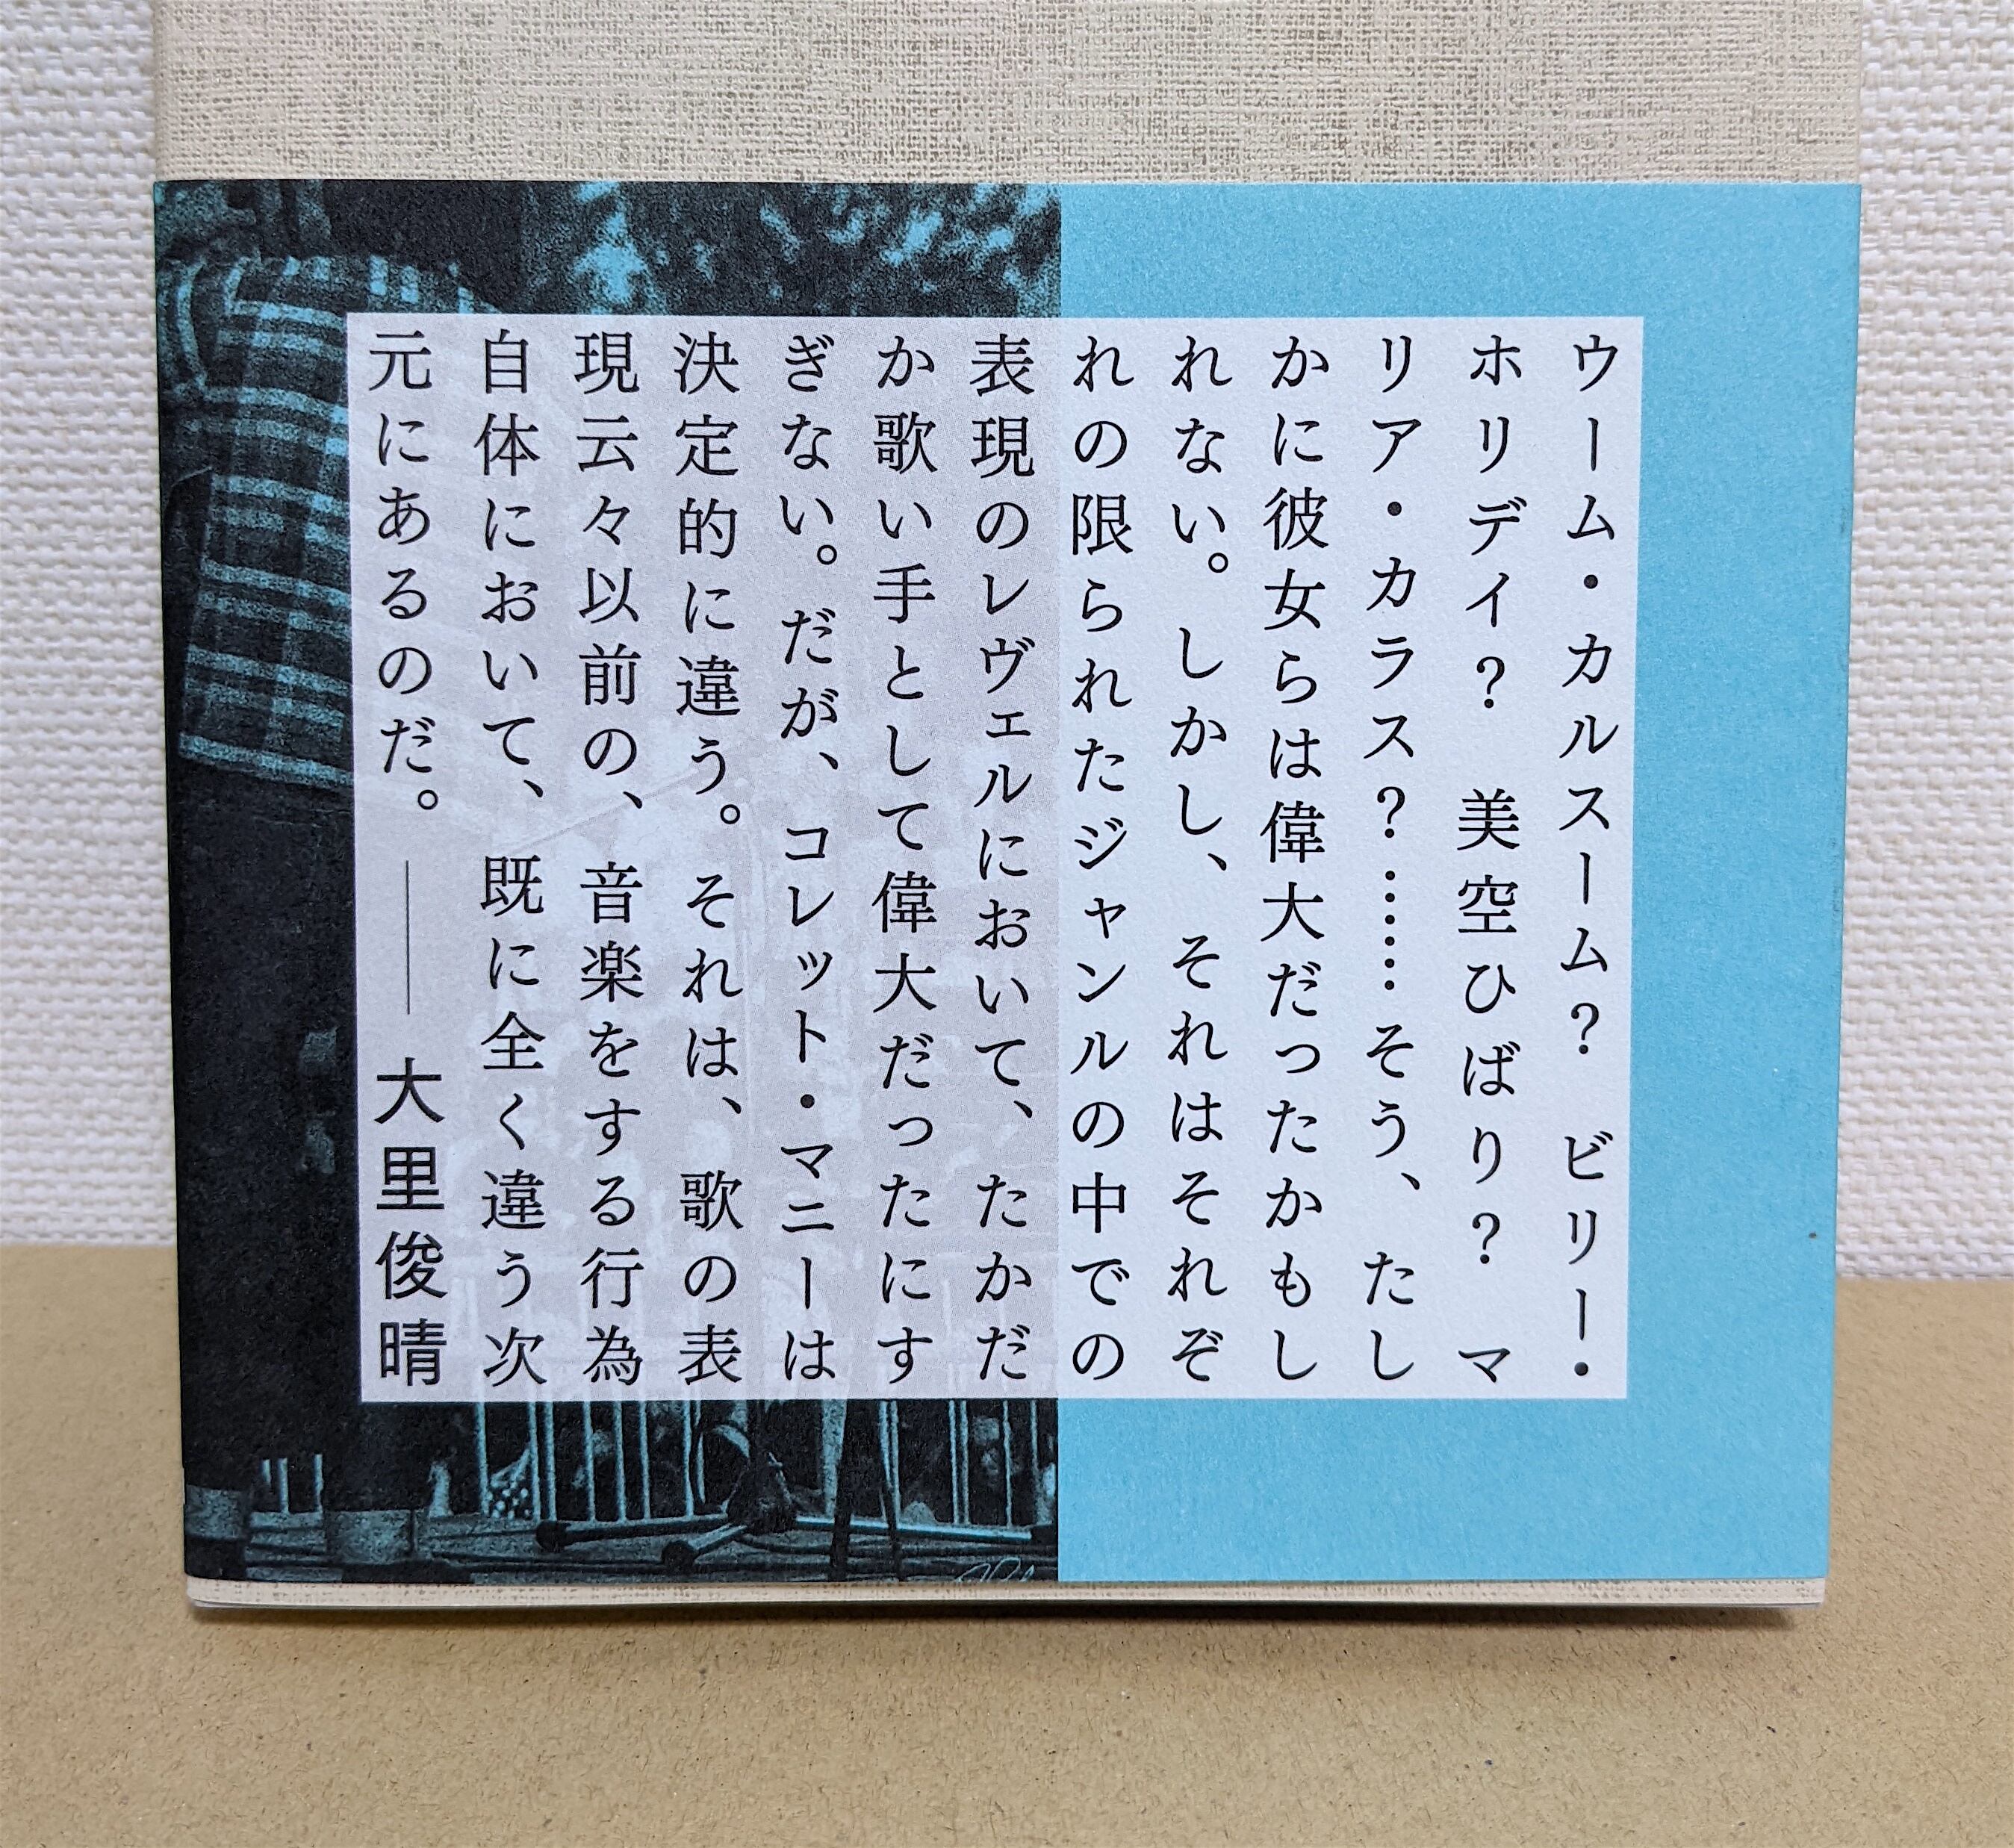 ウーム・カルスーム？ ビリー・
ホリデイ？ 美空ひばり？ マ
リア・カラス？……そう、たし
かに彼女らは偉大だったかもし
れない。しかし、それはそれぞ
れの限られたジャンルの中での
表現のレヴェルにおいて、ただ
か歌い手として偉大だったにす
ぎない。だが、コレット・マニーは
決定的に違う。それは、歌の表
現云々以前の、音楽をする行為
自体において、既に全く違う次
元にあるのだ。 ――大里俊晴